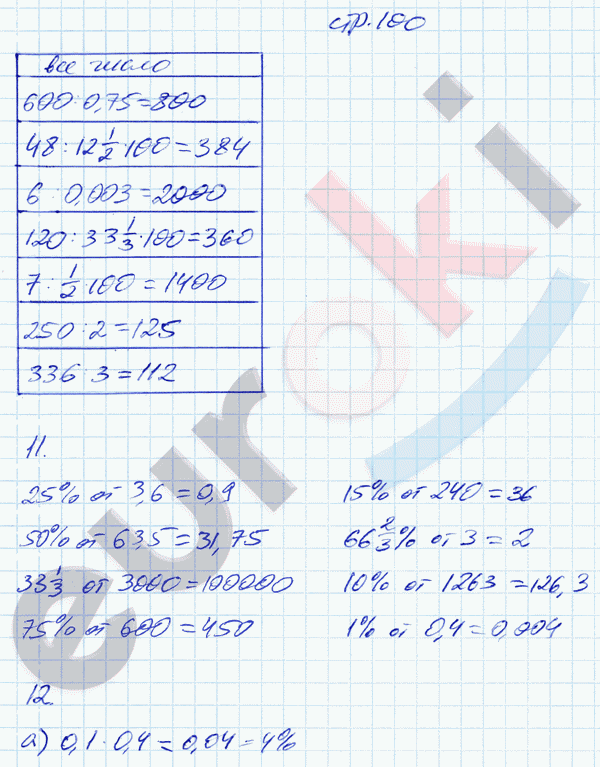 стр.100
все число
600 : 0,75 = 800
48 : 12 1/2 · 100 = 384
6 : 0,003 = 2000
120 : 33 1/3 · 100 = 360
7 : 1/2 · 100 = 1400
250 : 2 = 125
336 : 3 = 112
11.
25% от 3,6 = 0,9
15% от 240 = 36
50% от 63,5 = 31,75
66 2/3% от 3 = 2
33 1/3 от 3000 = 100000
10% от 1263 = 126,3
75% от 600 = 450
1% от 0,4 = 0,004
12.
а) 0,1 · 0,4 = 0,04 = 4%
euroki